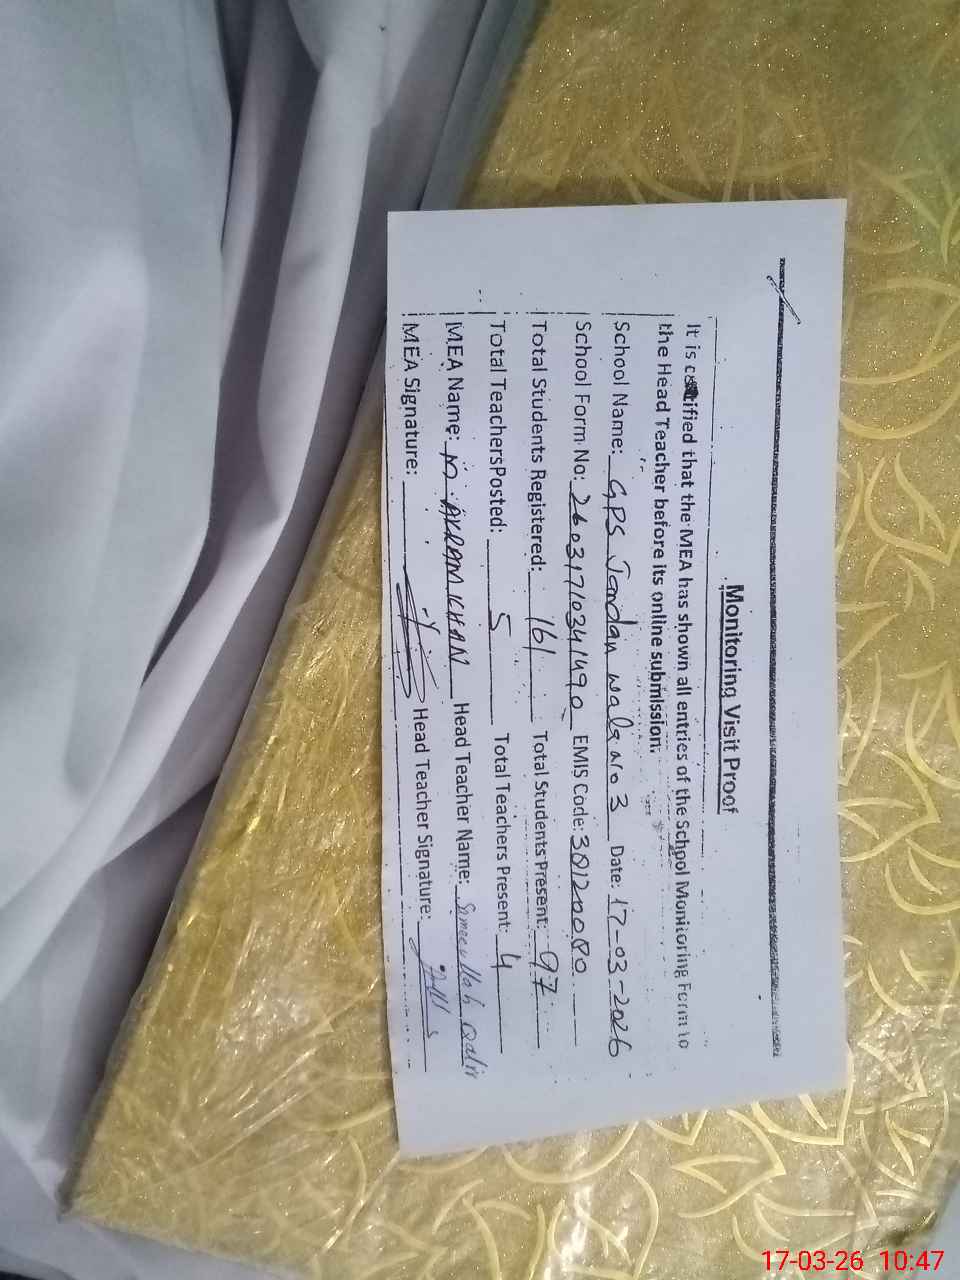 Monitoring Visit Proof
It is certified that the MEA has shown all entries of the School Monitoring Form to
the Head Teacher before its online submission.
School Name: GPS Jandan wala no 3 Date: 17-03-2026
School Form No: 26031710341490 EMIS Code: 30120080
Total Students Registered: 161 Total Students Present: 97
Total Teachers Posted: 5 Total Teachers Present: 4
MEA Name: M. AKRAM KHAN Head Teacher Name: Sameullah
MEA Signature: Head Teacher Signature:
17-03-26 10:47